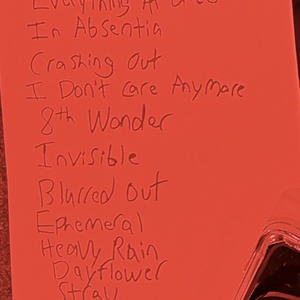 Everything At Once
In Absentia
Crashing Out
I Don't Care Anymore
8th Wonder
Invisible
Blurred Out
Ephemeral
Heavy Rain
Dayflower
Stray